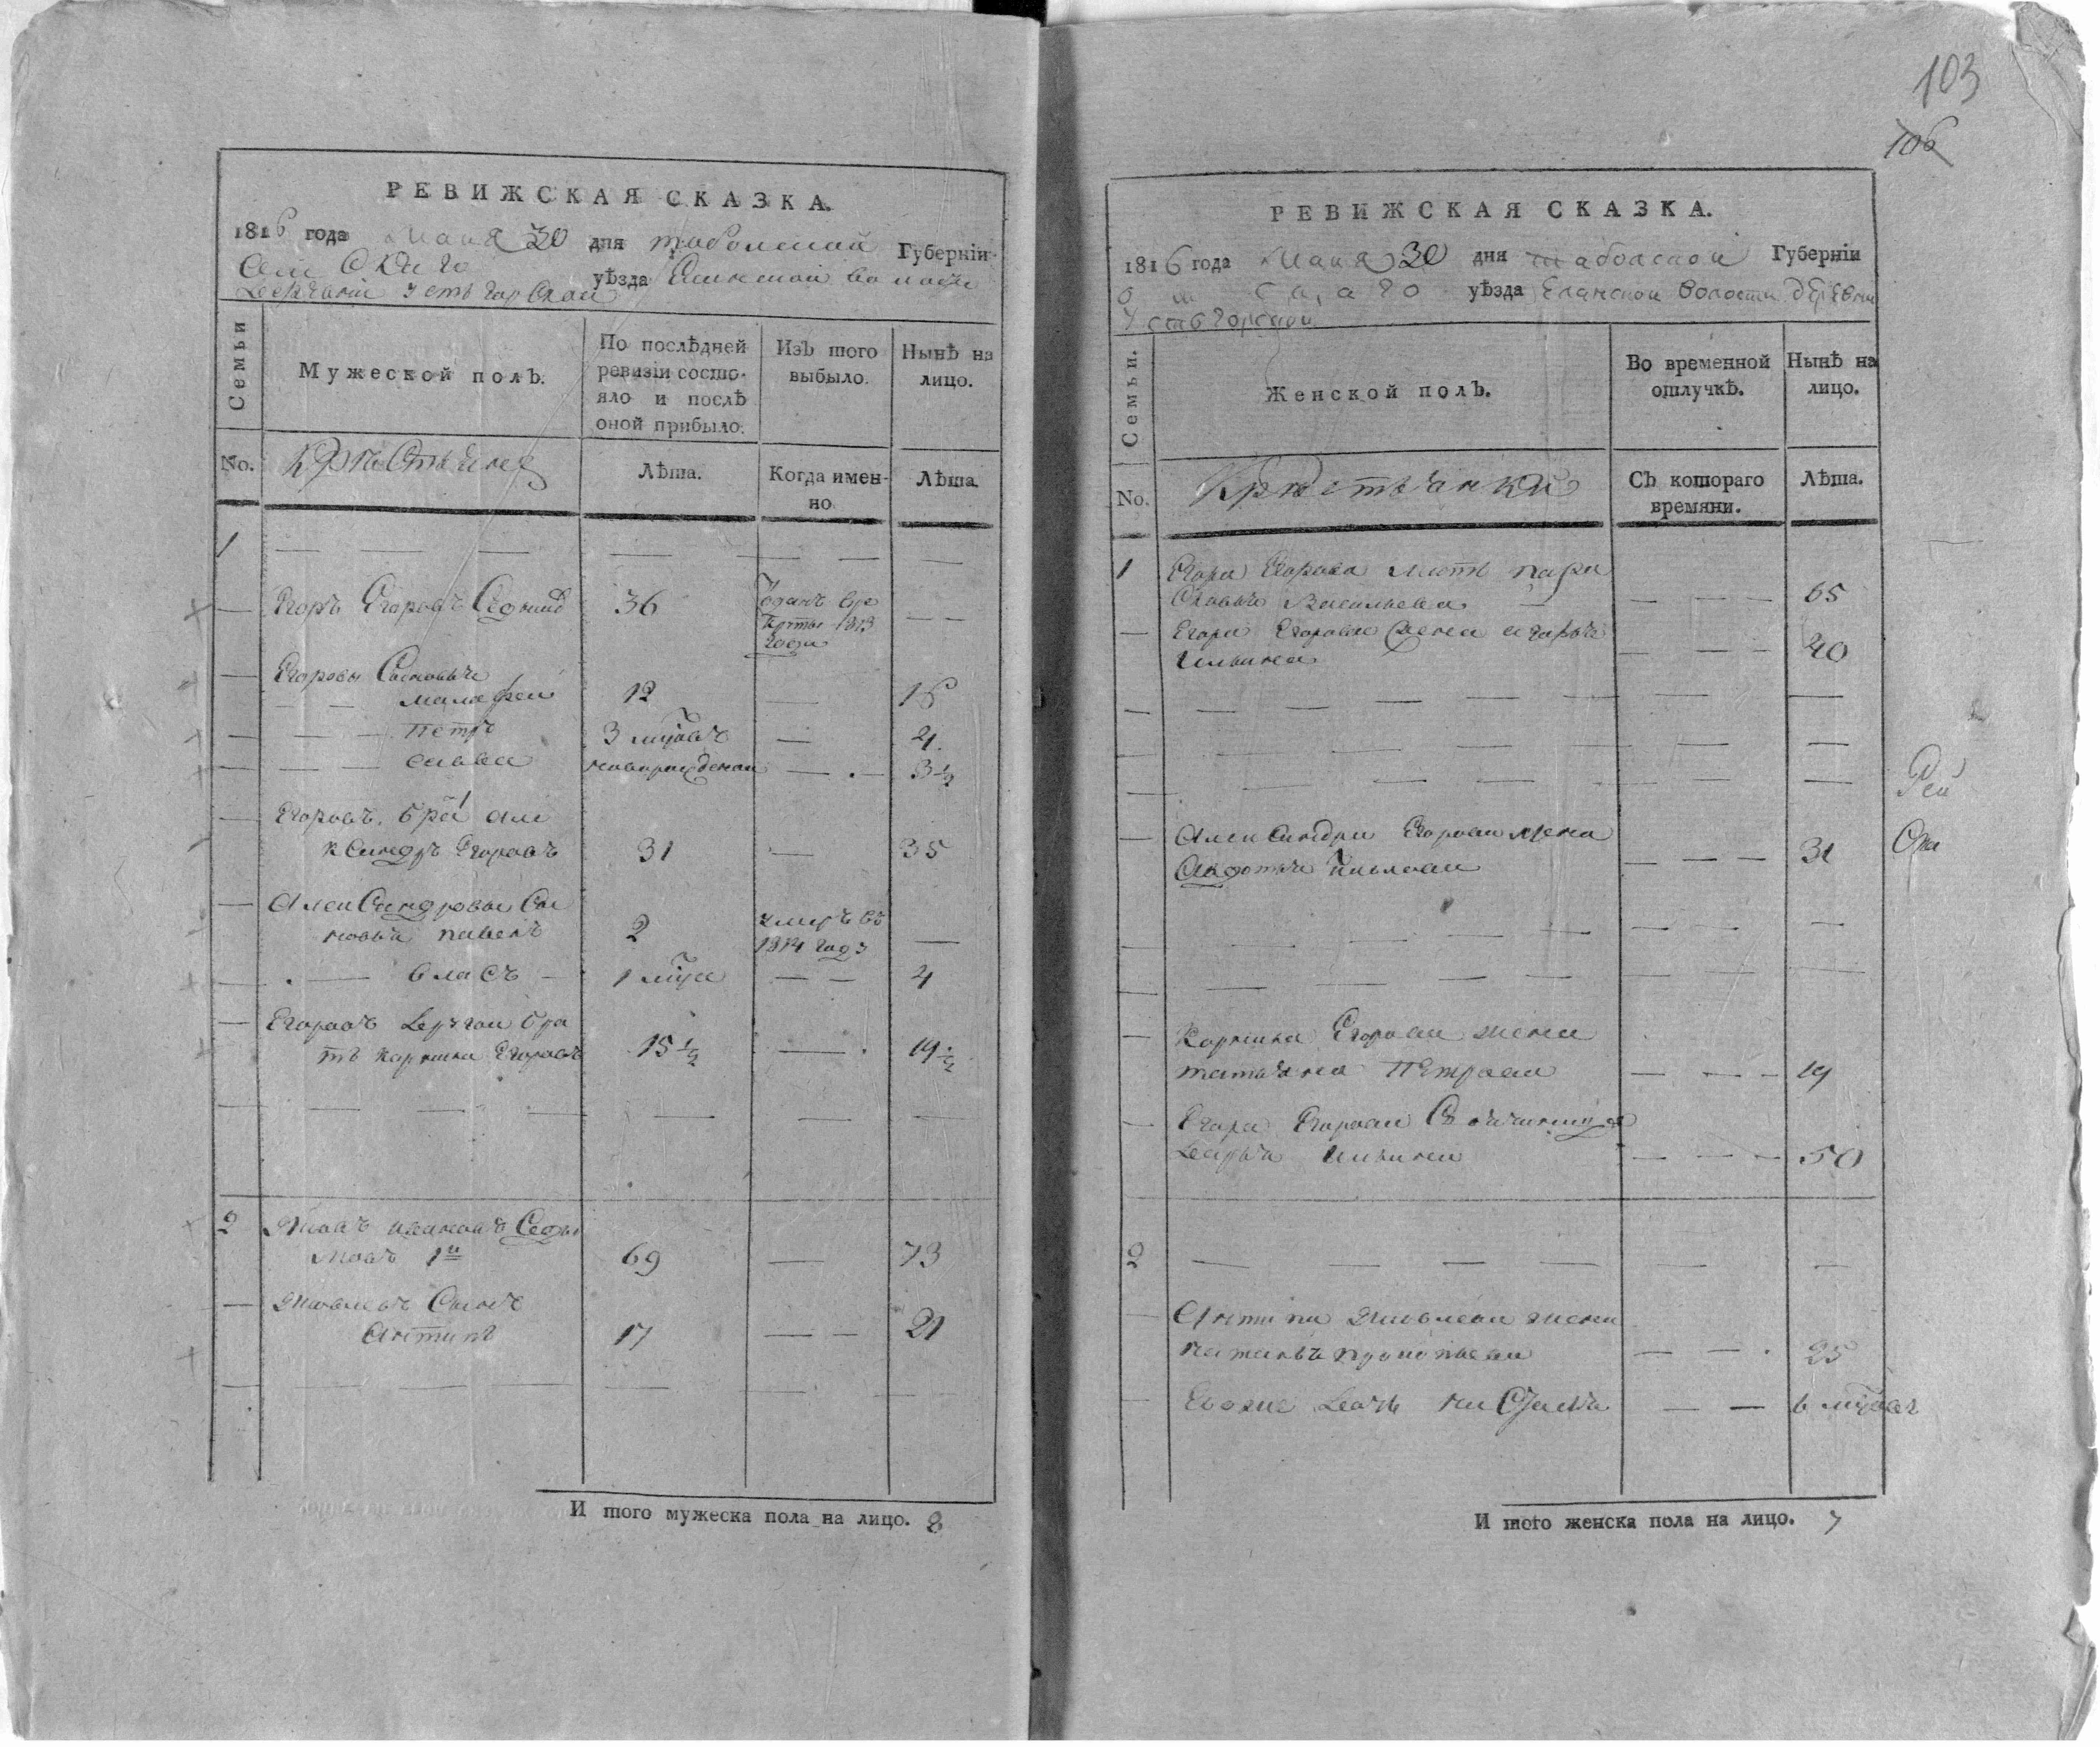 РЕВИЖСКАЯ СКАЗКА.
1816 года Маия 30 дня тобольской Губерніи
Омскаго уѣзда Еланской волости
деревни усть горской
Семьи
Мужеской полъ.
По послѣдней ревизіи состояло и послѣ оной прибыло.
Изъ того выбыло.
Нынѣ на лицо.
No. крѣстьяне
Лѣта.
Когда именно
Лѣта
1
Егоръ Егоровъ 36 отданъ в рекруты 1813 года
Егоровы Сыновья
малафей 12 16
петръ 3 мцовъ 4
савва новорожденой 3½
Егоровъ братъ Але
ксандръ Егоровъ 31 35
Александровы Сы
новья павелъ 2 умеръ въ 1814 году
власъ 1 мца 4
Егоровъ другой бра
тъ карнила Егоровъ 15½ 19½
2 Яковъ ивановъ Седы
мовъ 1й 69 73
Яковлевъ Сынъ
Антипъ 17 21
И того мужеска пола на лицо. 8
103
106
РЕВИЖСКАЯ СКАЗКА.
1816 года Маия 30 дня тобольской Губерніи
Омскаго уѣзда Еланской волости деревни
Усть горской
Семьи.
Женской полъ.
Во временной отлучкѣ.
Нынѣ на лицо.
No. Крѣстьянки
Съ котораго времяни.
Лѣта.
1 Егора Егорова мать пара
сковья Васильева 65
Егора Егорова жена
Ильина 40
Александра Егорова жена
Авдотья 31
Карнила Егорова жена
татьяна Петрова 19
Егора Егорова
дарья Ильина 50
2
Антипа Яковлева жена
наталья прокопьева 25
Евоже дочь 6 мцовъ
И того женска пола на лицо. 7